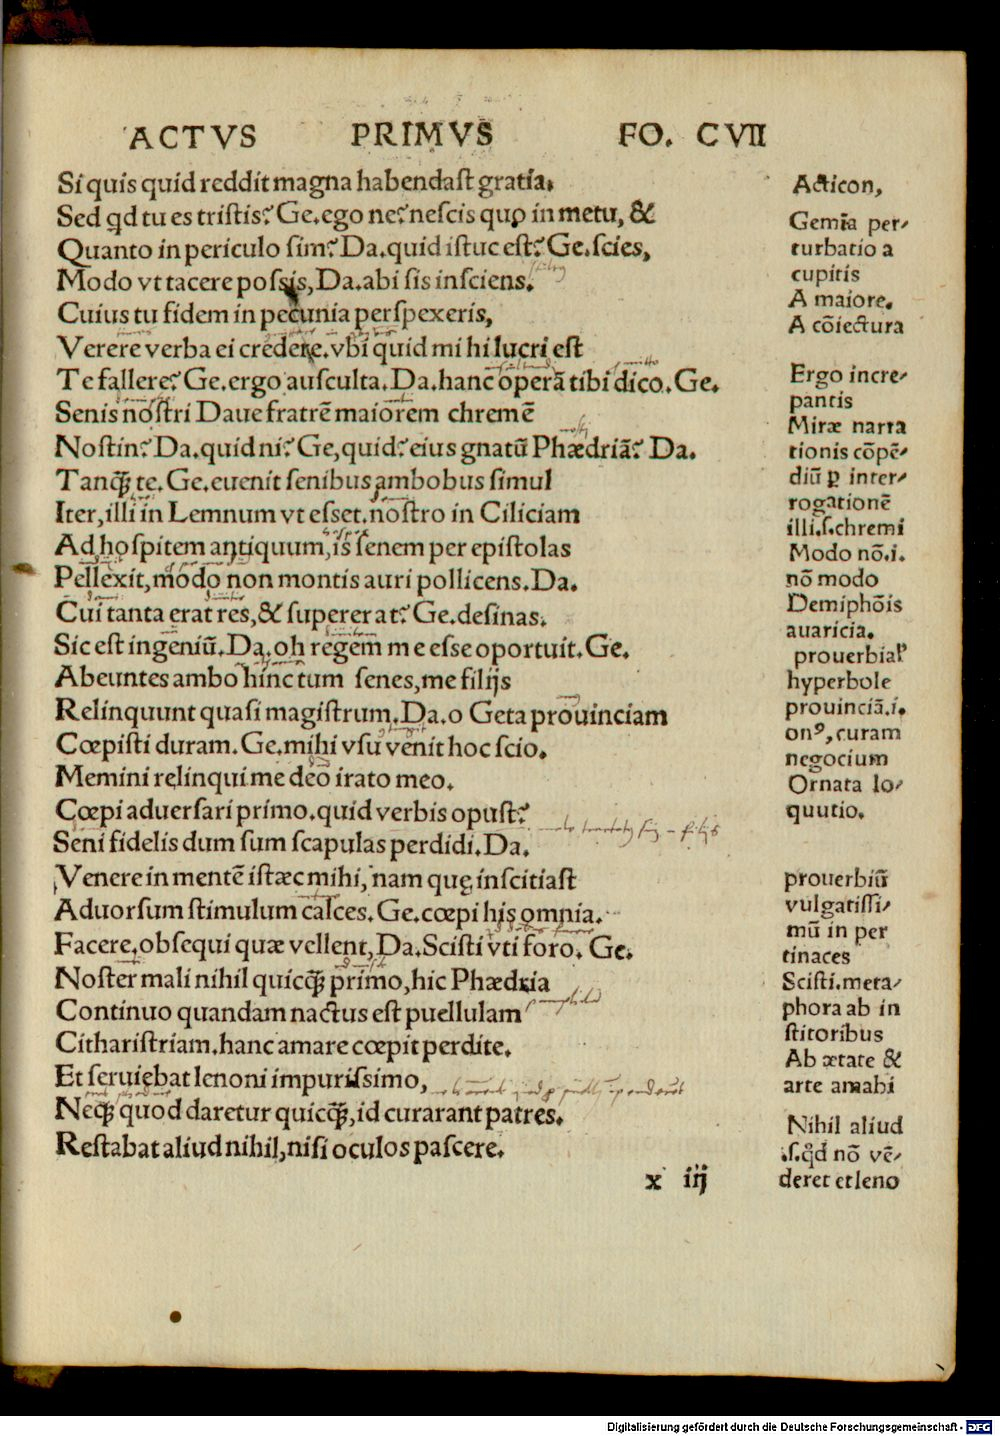 ACTVS PRIMVS FO. CVII
Si quis quid reddit magna habendast gratia.
Sed qd tu es tristis? Ge.ego ne? nescis quo in metu, &
Quanto in periculo sim? Da.quid istuc est? Ge.scies,
Modo vt tacere possis,Da.abi sis insciens.
Cuius tu fidem in pecunia perspexeris,
Verere verba ei credere.vbi quid mihi lucri est
Te fallere? Ge.ergo ausculta.Da.hanc operā tibi dico.Ge.
Senis nostri Daue fratrē maiorem chremē
Nostin? Da.quid ni? Ge,quid? eius gnatū Phædriā? Da.
Tanqȝ te.Ge.euenit senibus ambobus simul
Iter,illi in Lemnum vt esset.nostro in Ciliciam
Ad hospitem antiquum,is senem per epistolas
Pellexit,modo non montis auri pollicens.Da.
Cui tanta erat res,& supererat? Ge.desinas.
Sic est ingeniū.Da.oh regem me esse oportuit.Ge.
Abeuntes ambo hinc tum senes,me filijs
Relinquunt quasi magistrum.Da.o Geta prouinciam
Cœpisti duram.Ge.mihi vsu venit hoc scio.
Memini relinqui me deo irato meo.
Cœpi aduersari primo.quid verbis opust?
Seni fidelis dum sum scapulas perdidi.Da.
Venere in mentē istæc mihi, nam quę inscitiast
Aduorsum stimulum calces.Ge.cœpi his omnia.
Facere,obsequi quæ vellent,Da.Scisti vti foro. Ge.
Noster mali nihil quicqȝ primo,hic Phædria
Continuo quandam nactus est puellulam
Citharistriam.hanc amare cœpit perdite.
Et seruiebat lenoni impurissimo,
Neqȝ quod daretur quicqȝ,id curarant patres.
Restabat aliud nihil,nisi oculos pascere.
x iij
Acticon,
Gemīa per-
turbatio a
cupitis
A maiore.
A cōiectura
Ergo incre-
pantis
Miræ narra
tionis cōpē-
diū ꝑ inter-
rogationē
illi.s.chremi
Modo nō.i.
nō modo
Demiphōis
auaricia.
prouerbial'
hyperbole
prouinciā.i.
onꝰ,curam
negocium
Ornata lo-
quutio.
prouerbiū
vulgatissi-
mū in per
tinaces
Scisti.meta-
phora ab in
stitoribus
Ab ætate &
arte amabi
Nihil aliud
.s.qd nō vē-
deret et leno
Digitalisierung gefördert durch die Deutsche Forschungsgemeinschaft - DFG